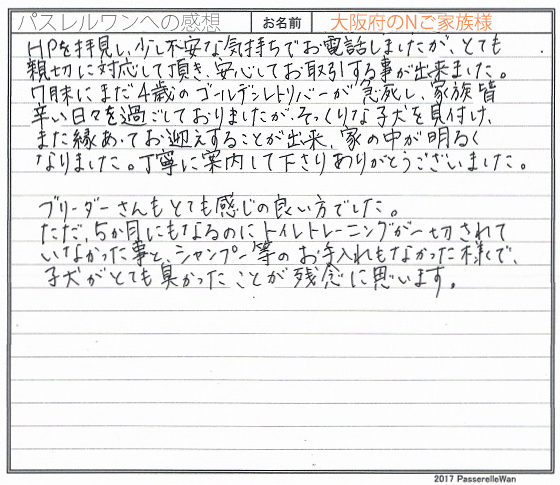 パスレルワンへの感想 お名前 大阪府のNご家族様
HPを拝見し、少し不安な気持ちでお電話しましたが、とても
親切に対応して頂き、安心してお取引する事が出来ました。
7月末にまだ4歳のゴールデンレトリバーが急死し、家族皆
辛い日々を過ごしておりましたが、そっくりな子犬を見付け、
また縁あってお迎えすることが出来、家の中が明るく
なりました。丁寧に案内して下さりありがとうございました。
ブリーダーさんもとても感じの良い方でした。
ただ、5か月にもなるのにトイレトレーニングが一切されて
いなかった事と、シャンプー等のお手入れもなかった様で、
子犬がとても臭かったことが残念に思います。
2017 PasserelleWan